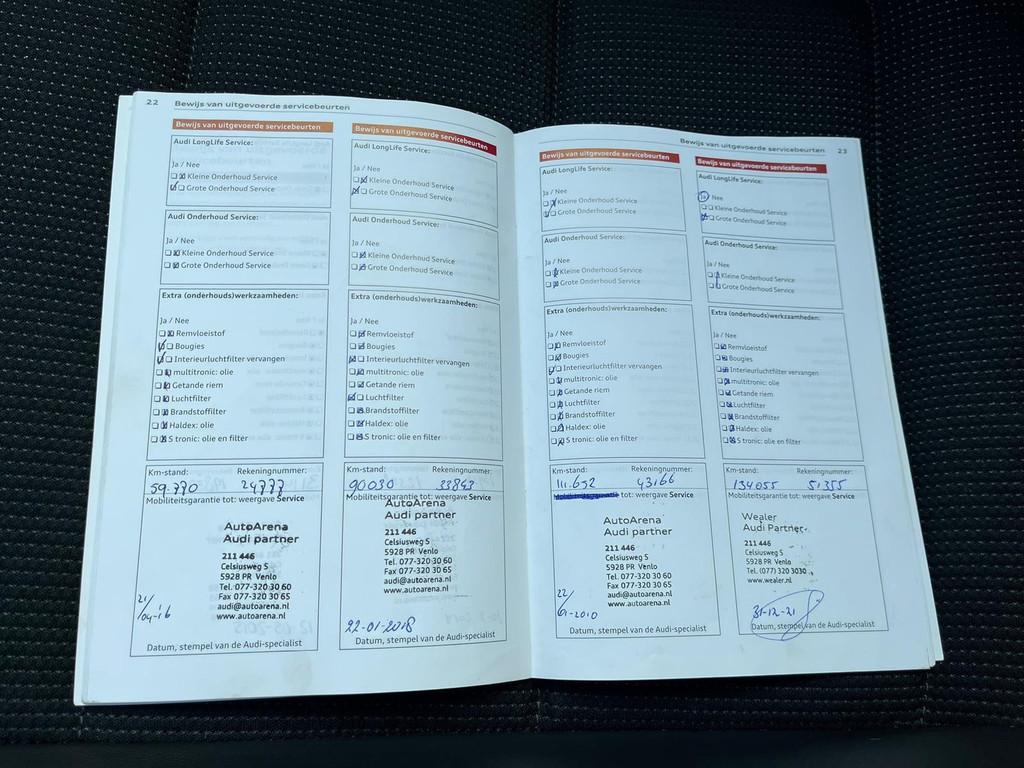 22 Bewijs van uitgevoerde servicebeurten
Bewijs van uitgevoerde servicebeurten
Audi LongLife Service:
Ja / Nee
Kleine Onderhoud Service
Grote Onderhoud Service
Audi Onderhoud Service:
Ja / Nee
Kleine Onderhoud Service
Grote Onderhoud Service
Extra (onderhouds)werkzaamheden:
Ja / Nee
Remvloeistof
Bougies
Interieurluchtfilter vervangen
multitronic: olie
Getande riem
Luchtfilter
Brandstoffilter
Haldex: olie
S tronic: olie en filter
Km-stand: Rekeningnummer:
59.770 24777
Mobiliteitsgarantie tot: weergave Service
AutoArena
Audi partner
211 446
Celsiusweg 5
5928 PR Venlo
Tel. 077-320 30 60
Fax 077-320 30 65
audi@autoarena.nl
www.autoarena.nl
21/
04-16
Datum, stempel van de Audi-specialist
Bewijs van uitgevoerde servicebeurten
Audi LongLife Service:
Ja / Nee
Kleine Onderhoud Service
Grote Onderhoud Service
Audi Onderhoud Service:
Ja / Nee
Kleine Onderhoud Service
Grote Onderhoud Service
Extra (onderhouds)werkzaamheden:
Ja / Nee
Remvloeistof
Bougies
Interieurluchtfilter vervangen
multitronic: olie
Getande riem
Luchtfilter
Brandstoffilter
Haldex: olie
S tronic: olie en filter
Km-stand: Rekeningnummer:
90030 33843
Mobiliteitsgarantie tot: weergave Service
AutoArena
Audi partner
211 446
Celsiusweg 5
5928 PR Venlo
Tel. 077-320 30 60
Fax 077-320 30 65
audi@autoarena.nl
www.autoarena.nl
22-01-2018
Datum, stempel van de Audi-specialist
Bewijs van uitgevoerde servicebeurten 23
Bewijs van uitgevoerde servicebeurten
Audi LongLife Service:
Ja / Nee
Kleine Onderhoud Service
Grote Onderhoud Service
Audi Onderhoud Service:
Ja / Nee
Kleine Onderhoud Service
Grote Onderhoud Service
Extra (onderhouds)werkzaamheden:
Ja / Nee
Remvloeistof
Bougies
Interieurluchtfilter vervangen
multitronic: olie
Getande riem
Luchtfilter
Brandstoffilter
Haldex: olie
S tronic: olie en filter
Km-stand: Rekeningnummer:
111.652 43166
tot: weergave Service
AutoArena
Audi partner
211 446
Celsiusweg 5
5928 PR Venlo
Tel. 077-320 30 60
Fax 077-320 30 65
audi@autoarena.nl
www.autoarena.nl
22/
Datum, stempel van de Audi-specialist
Bewijs van uitgevoerde servicebeurten
Audi LongLife Service:
Ja / Nee
Kleine Onderhoud Service
Grote Onderhoud Service
Audi Onderhoud Service:
Ja / Nee
Kleine Onderhoud Service
Grote Onderhoud Service
Extra (onderhouds)werkzaamheden:
Ja / Nee
Remvloeistof
Bougies
Interieurluchtfilter vervangen
multitronic: olie
Getande riem
Luchtfilter
Brandstoffilter
Haldex: olie
S tronic: olie en filter
Km-stand: Rekeningnummer:
134055 51355
Mobiliteitsgarantie tot: weergave Service
Wealer
Audi Partner
211 446
Celsiusweg 5
5928 PR Venlo
Tel. (077) 320 3030
www.wealer.nl
31-12-21
Datum, stempel van de Audi-specialist